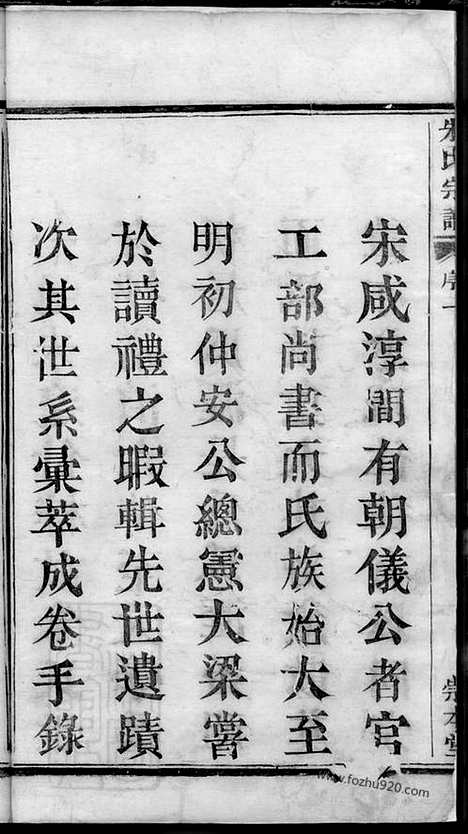 朱氏宗譜
序一
崇本堂
宋咸淳間有朝儀公者官
工部尚書而氏族始大至
明初仲安公總憲大梁嘗
於讀禮之暇輯先世遺蹟
次其世系彙萃成卷手錄
www.fozhu920.com